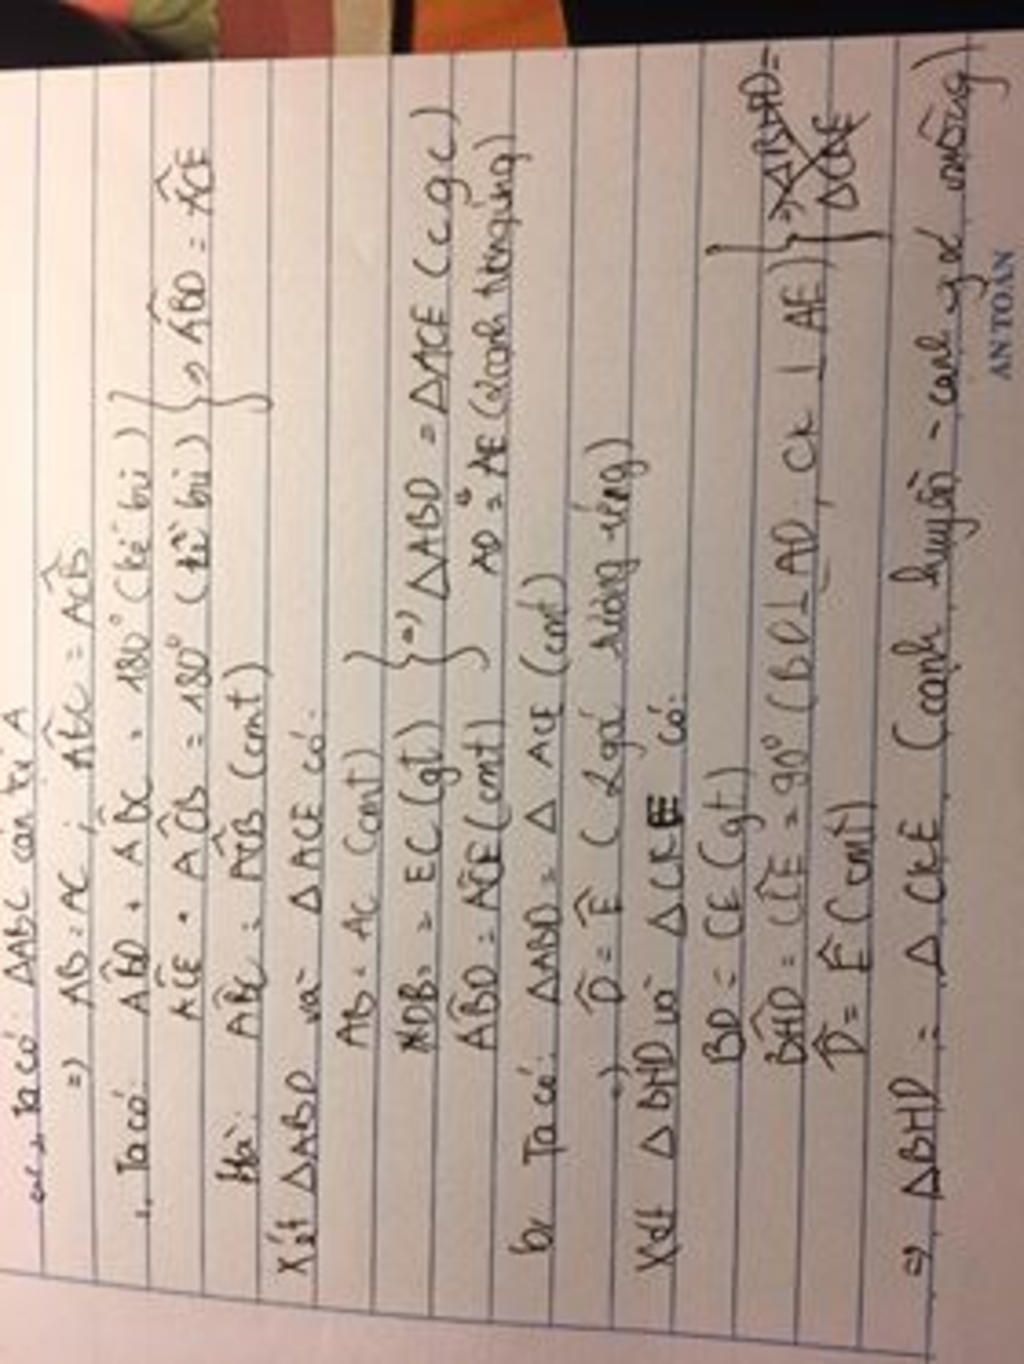 Ta có: ΔABC cân tại A
=> AB = AC ; ABĈ = AĈB
Ta có: AB̂D + AB̂C = 180° (kề bù)
AĈE + AĈB = 180° (kề bù) } => AB̂D = AĈE
Mà: AB̂C = AĈB (cmt)
Xét ΔABD và ΔACE có:
AB = AC (cmt)
DB = EC (gt) } => ΔABD = ΔACE (cgc)
AB̂D = AĈE (cmt) AD = AE (2 cạnh tương ứng)
b, Ta có: ΔABD = ΔACE (cmt)
=> D̂ = Ê (2 góc tương ứng)
Xét ΔBHD và ΔCKE có:
BD = CE (gt)
BĤD = = 90° (BD ⊥ AD, CK ⊥ AE) } => ΔBHD = ΔCKE
D̂ = Ê (cmt)
=> ΔBHD = ΔCKE (cạnh huyền - cạnh góc vuông)
AN TOÀN